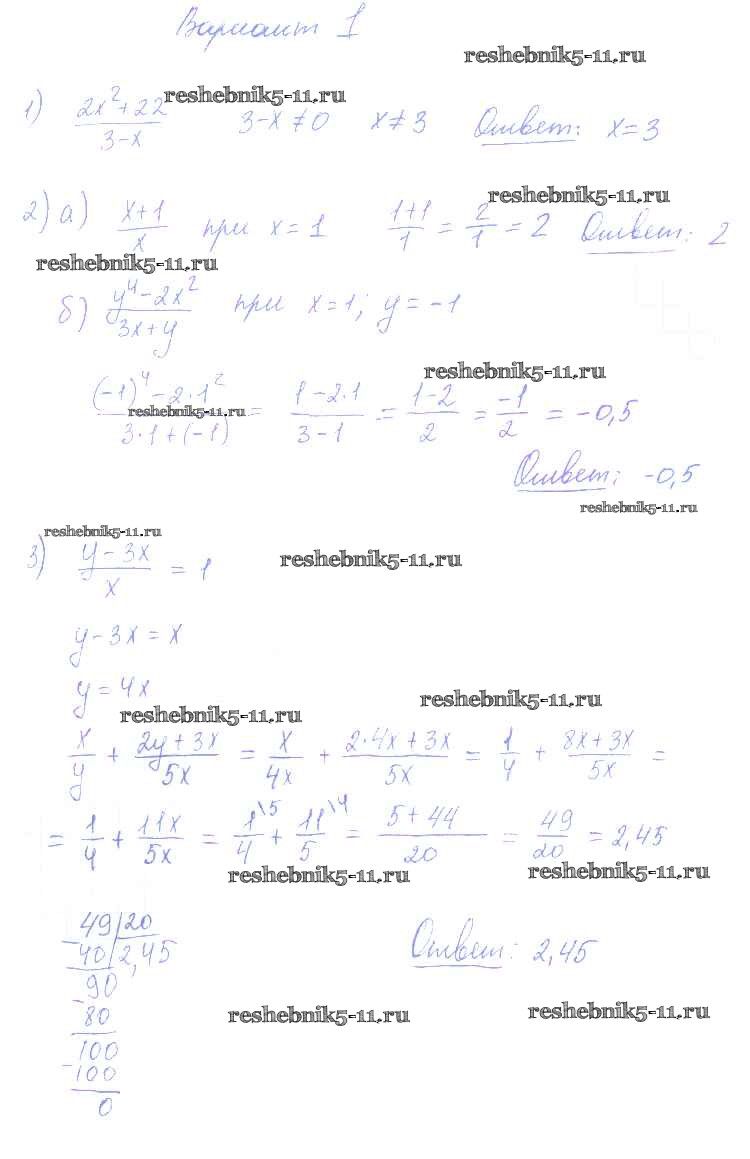 Вариант 1
reshebnik5-11.ru
1) (2x²+22)/(3-x) reshebnik5-11.ru 3-x≠0 x≠3 Ответ: x=3
reshebnik5-11.ru
2) а) (x+1)/x при x=1 (1+1)/1 = 2/1 = 2 Ответ: 2
reshebnik5-11.ru
б) (y⁴-2x²)/(3x+y) при x=1; y=-1
reshebnik5-11.ru
((-1)⁴-2·1²)/(3·1+(-1)) = (1-2·1)/(3-1) = (1-2)/2 = -1/2 = -0,5
reshebnik5-11.ru
Ответ: -0,5
reshebnik5-11.ru
reshebnik5-11.ru
3) (y-3x)/x = 1 reshebnik5-11.ru
y-3x=x
y=4x
reshebnik5-11.ru reshebnik5-11.ru
x/y + (2y+3x)/5x = x/4x + (2·4x+3x)/5x = 1/4 + (8x+3x)/5x =
= 1/4 + 11x/5x = 1\5/4 + 11\4/5 = (5+44)/20 = 49/20 = 2,45
reshebnik5-11.ru reshebnik5-11.ru
49|20
-40|2,45 Ответ: 2,45
90
-80 reshebnik5-11.ru reshebnik5-11.ru
100
-100
0